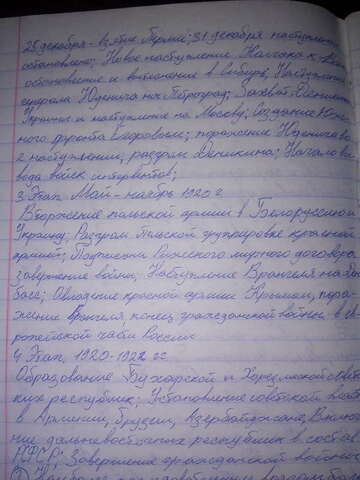 25 декабря - взятие Перми; 31 декабря наступление
остановлено; Новое наступление Колчака к
остановление и вытеснение в Сибирь; Наступление
генерала Юденича на Петроград; Захват Деникина
Украины и наступление на Москву; Создание Юж-
ного фронта Егоровым; поражение Юденича во
2 наступлении, разгром Деникина; Начало вы-
вода войск интервентов;
3 Этап. Май - ноябрь 1920 г.
Вторжение польской армии в Белоруссию и
Украину; Разгром Польской группировке красной
армией; Подписание Рижского мирного договора,
завершение войны; Наступление Врангеля на Дон
басс; Овладение красной армии Крымом, пора-
жение Врангеля конец гражданской войны в ев
ропейской части России
4 Этап. 1920-1922 гг
Образование Бухарской и Хорезмской советс
ких республик; Установление советской власти
в Армении, Грузии, Азербайджане; Включе
ние дальневосточных республик в состав
РСФСР; Завершение гражданской войны